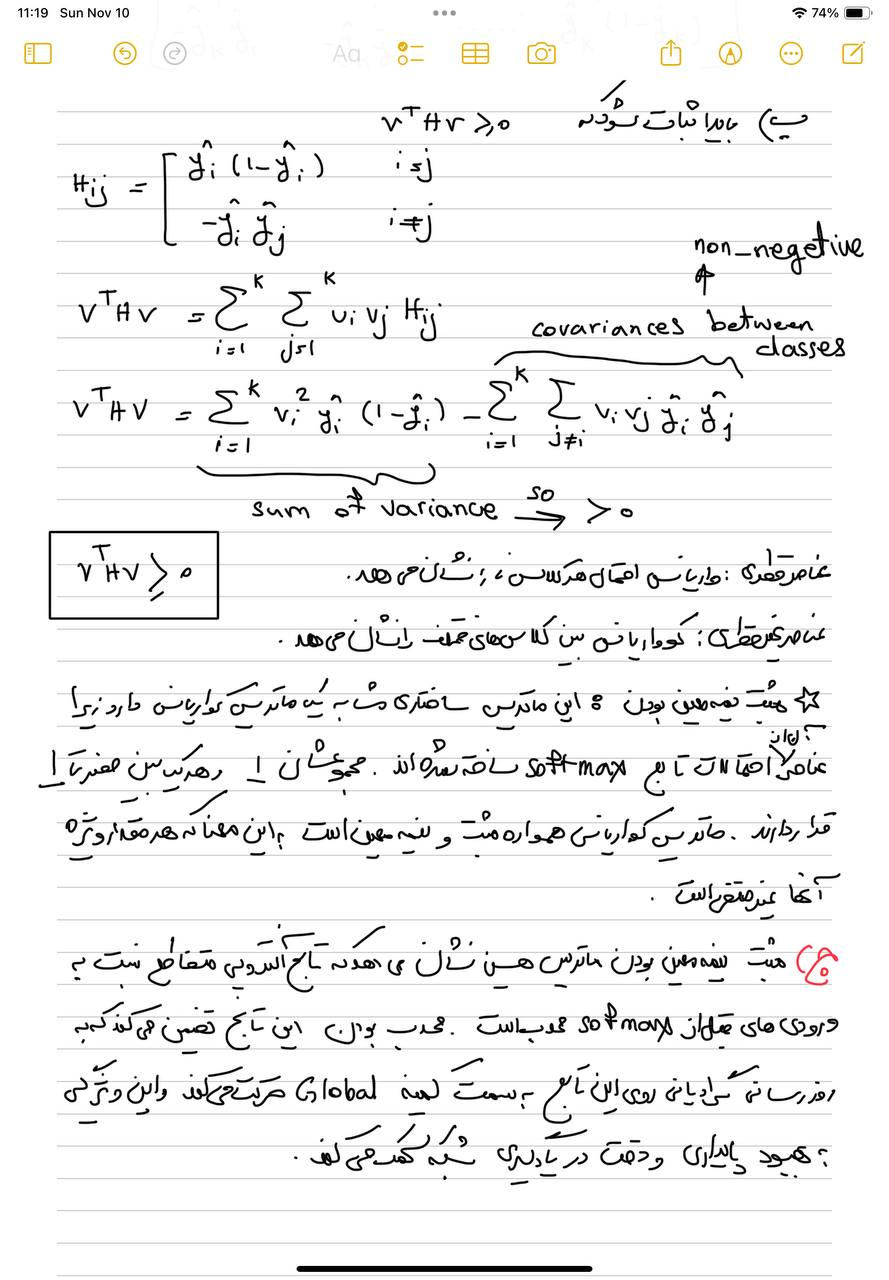 11:19 Sun Nov 10
74%
Aa
ب) باید اثبات شود که vᵀHv ≥ 0
Hij = [ ŷi (1-ŷi) i=j
-ŷi ŷj i≠j
non_negetive
vᵀHv = Σ_{i=1}^{K} Σ_{j=1}^{K} vi vj Hij
covariances between
classes
vᵀHv = Σ_{i=1}^{K} vi² ŷi (1-ŷi) - Σ_{i=1}^{K} Σ_{j≠i} vi vj ŷi ŷj
sum of variance so → > 0
vᵀHv ≥ 0
عناصر قطری: واریانس احتمال هر کلاس را نشان می دهد.
عناصر غیرقطری: کوواریانس بین کلاس های مختلف را نشان می دهد.
☆ مثبت نیمه معین بودن: این ماتریس ساختاری مشابه یک ماتریس کواریانس دارد زیرا
عناصر آن از احتمالات تابع softmax ساخته شده اند. مجموعشان 1 و هر یک بین صفر تا 1
قرار دارند. ماتریس کواریانس همواره مثبت و نیمه معین است به این معنا که هر مقدار ویژه
آنها غیرمنفی است.
ج) مثبت نیمه معین بودن ماتریس هسین نشان می دهد که تابع آنتروپی متقاطع نسبت به
ورودی های قبل از softmax محدب است. محدب بودن این تابع تضمین می کند که به
روزرسانی گرادیانی روی این تابع به سمت کمینه Global حرکت می کند و این ویژگی
به بهبود پایداری و دقت در یادگیری شبکه کمک می کند.